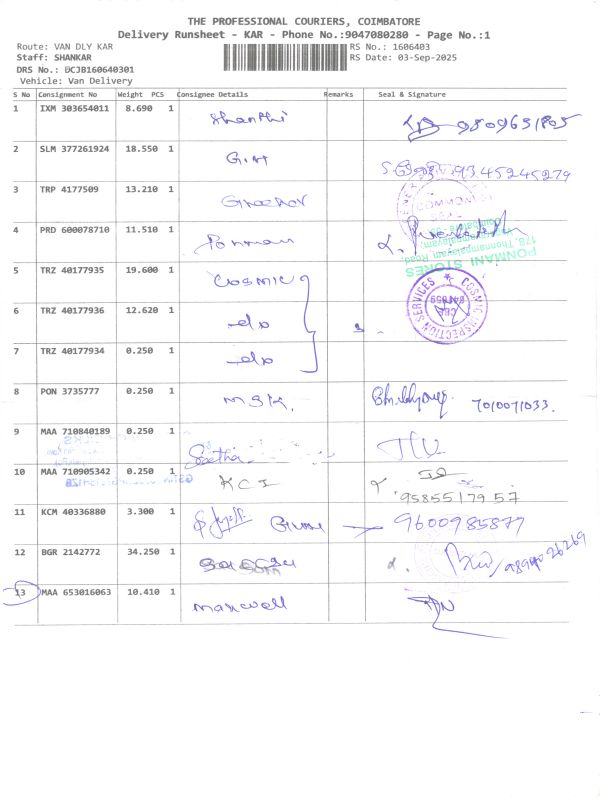 THE PROFESSIONAL COURIERS, COIMBATORE
Delivery Runsheet - KAR - Phone No.:9047080280 - Page No.:1
Route: VAN DLY KAR RS No.: 1606403
Staff: SHANKAR RS Date: 03-Sep-2025
DRS No.: DCJB160640301
Vehicle: Van Delivery
S No Consignment No Weight PCS Consignee Details Remarks Seal & Signature
1 IXM 303654011 8.690 1 Shanthi
2 SLM 377261924 18.550 1 9345245279
3 TRP 4177509 13.210 1
4 PRD 600078710 11.510 1 Ponmani
PONMANI STORES
178, Thonnampalayam Road,
5 TRZ 40177935 19.600 1 COSMIC
COSMIC INSPECTION SERVICES
CBE
641659
6 TRZ 40177936 12.620 1 -do
7 TRZ 40177934 0.250 1 -do
8 PON 3735777 0.250 1 MSK. 7010071033.
9 MAA 710840189 0.250 1 Seetha
10 MAA 710905342 0.250 1 KCI 9585517957
11 KCM 40336880 3.300 1 9600985877
12 BGR 2142772 34.250 1
13 MAA 653016063 10.410 1 Maxwell